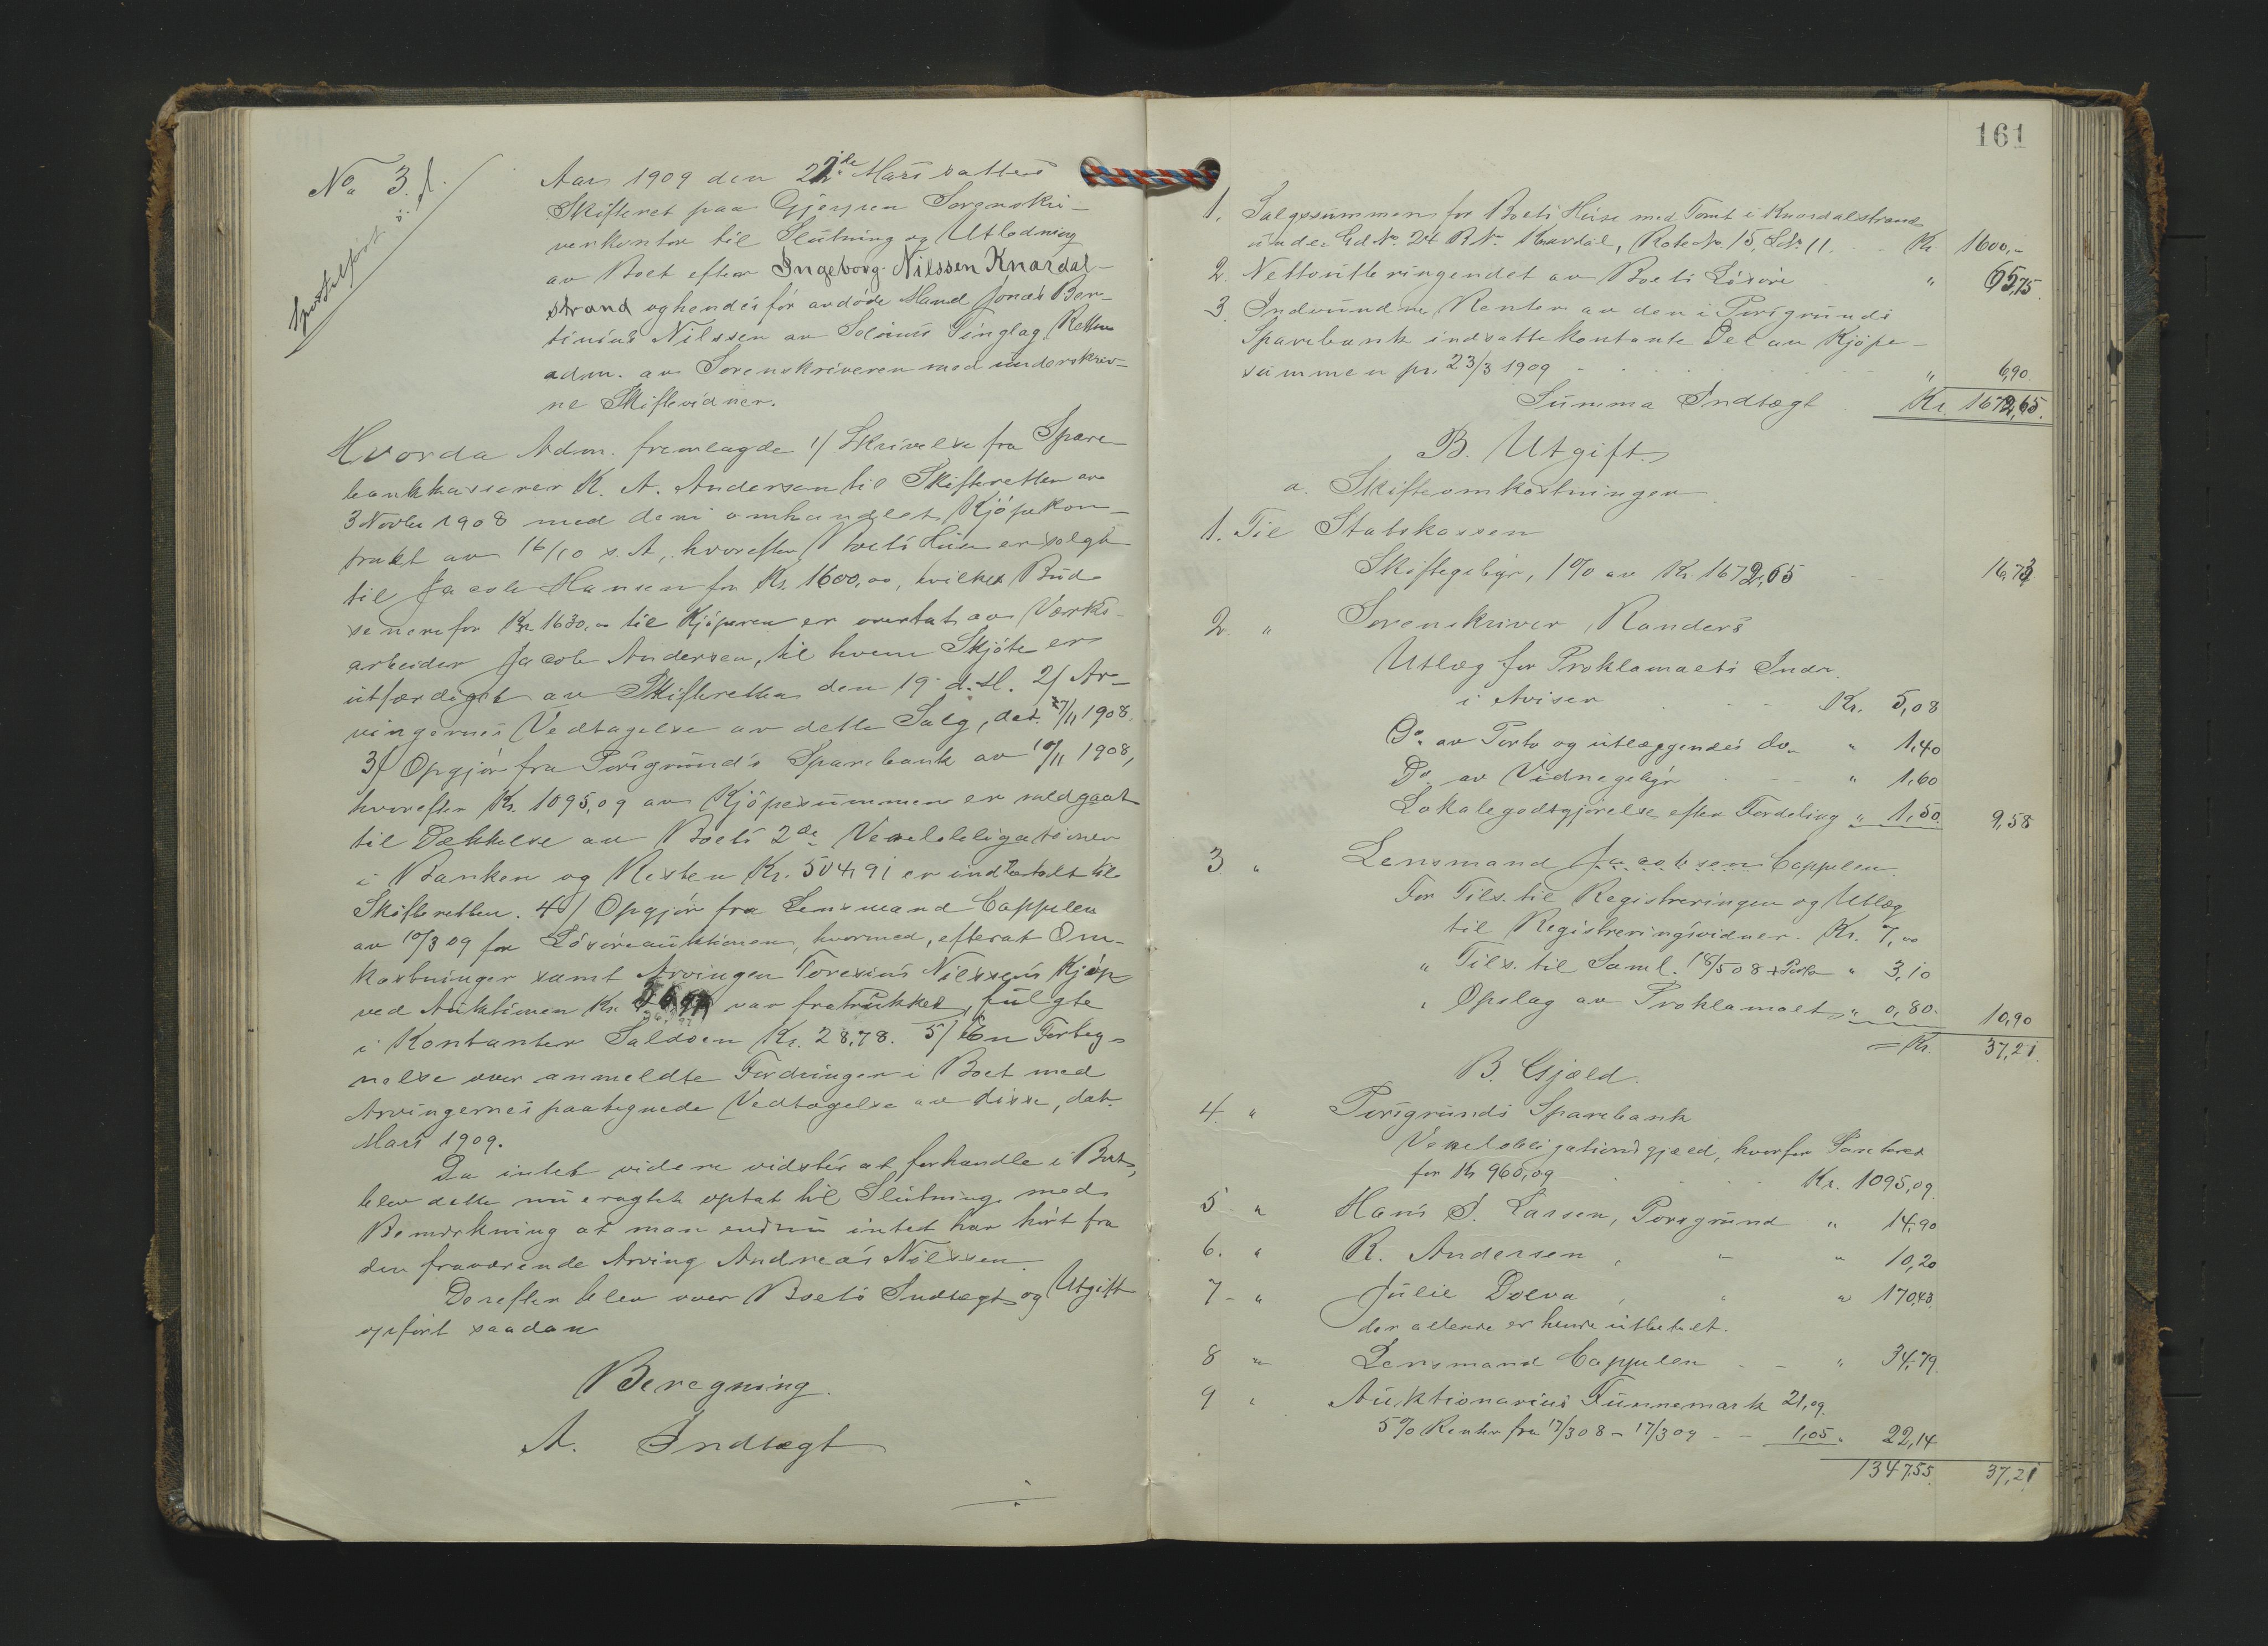 No 3.
Sportelført
Aar 1909 den 22de Mars sattes
Skifteret paa Gjerpen Sorenskri-
verkontor til Slutning og Utlodning
av Boet efter Ingeborg Nilssen Knardal-
strand og hendes før avdøde Mand Jonas Ber-
tinius Nilssen av Solums Tinglag. Retten
adm. av Sorenskriveren med underskrev-
ne Skiftevidner.
Hvorda Adm. fremlagde 1/ Skrivelse fra Spare-
bankkasserer K. A. Andersen til Skifteretten av
3 Novbr 1908 med deri omhandlet Kjøpekon-
trakt av 16/10 s. A., hvorefter Boets Hus er solgt
til Jacob Hansen for Kr. 1600,00, hvilket Bud
senere for Kr 1630,00 til Kjøperen er overtat av Verks-
arbeider Jacob Andersen, til hvem Skjøte er
utfærdiget av Skifteretten den 19 d. M. 2/ Ar-
vingernes Vedtagelse av dette Salg, dat. 7/11 1908.
3/ Opgjør fra Porsgrunds Sparebank av 10/11 1908,
hvorefter Kr. 1095,09 av Kjøpesummen er medgaat
til Dækkelse av Boets 2de Vexelobligationer
i Banken og Resten Kr. 504,91 er indbetalt til
Skifteretten. 4/ Opgjør fra Lensmand Cappelen
av 10/3 09 for Løsøreauktionen, hvormed, efterat Om-
kostninger samt Arvingen Toresius Nilssens Kjøp
ved Auktionen Kr. 36,97 var fratrukket, fulgte
i Kontanter Saldoen Kr. 28,78. 5/ En Forteg-
nelse over anmeldte Fordringer i Boet med
Arvingernes paategnede Vedtagelse av disse, dat.
Mars 1909.
Da intet videre vidstes at forhandle i Boet,
blev dette nu eragtet optat til Slutning med
Bemerkning at man endnu intet har hørt fra
den fraværende Arving Andreas Nilssen.
Derefter blev over Boets Indtægt og Utgift
opført saadan
Beregning.
A. Indtægt
161
1. Salgssummen for Boets Huse med Tomt i Knardalstrand
under Gd No. 24 B.N. Knardal, Rode No. 15, L.N. 11. - - Kr. 1600,-
2. Nettoutbringendet av Boets Løsøre " 65,75
3. Indvundne Renter av den i Porsgrunds
Sparebank indsatte kontante Del av Kjøpe-
summen pr. 23/3 1909 " 6,90
Summa Indtægt Kr. 1672,65.
B. Utgift.
a. Skifteomkostninger
1. Til Statskassen
Skiftegebyr, 1% av Kr 1672,65 - 16,73
2. " Sorenskriver Randers
Utlæg for Proklamaets Indr.
i Aviser - - Kr. 5,08
Do. av Porto og utlæggendes do. " 1,40
Do. av Vidnegebyr - - " 1,60
Lokalegodtgjørelse efter Fordeling " 1,50. 9,58
3 " Lensmand Jacobsen Cappelen.
For Tils. til Registreringen og Utlæg
til Registreringsvidner. Kr. 7,00
" Tils. til Saml. 18/5 08 + Porto " 3,10
" Opslag av Proklamaet " 0,80. 10,90
= Kr. 37,21.
B. Gjæld.
4. " Porsgrunds Sparebank
Vexelobligationsgjæld, hvorfor Panteret
for Kr 960,09 Kr. 1095,09.
5 - " Hans J. Larsen, Porsgrund " 14,90
6. " R. Andersen, " " 10,20
7 - " Julie Doeva, " " 170,43
der allerede er hende utbetalt.
8 " Lensmand Cappelen - - " 34,79.
9 " Auktionarius Funnemark 21,09.
5% Renter fra 17/3 08 - 17/3 09 - - 1,05. " 22,14
1347,55. 37,21